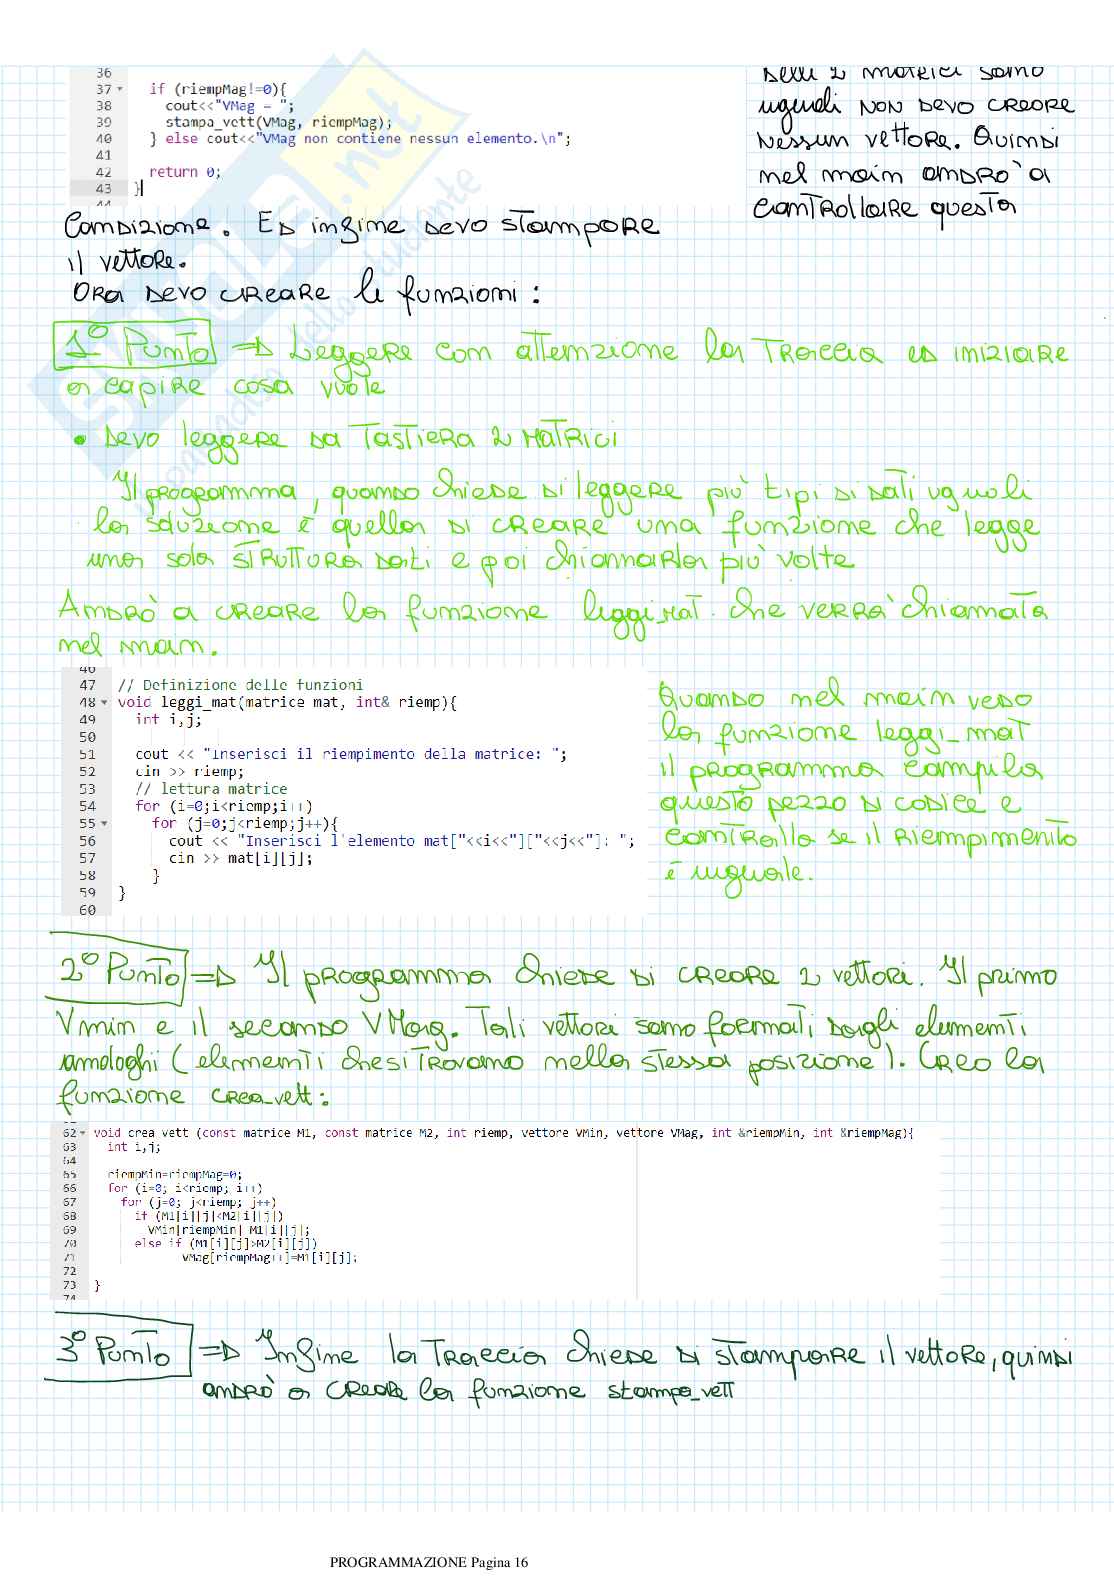 36
37 if (riempMag!=0){
38 cout<<"VMag = ";
39 stampa_vett(VMag, riempMag);
40 } else cout<<"VMag non contiene nessun elemento.\n";
41
42 return 0;
43 }
44
Delle 2 matrici sono
uguali NON DEVO CREARE
Nessun vettore. Quindi
nel main andrò a
CONTROLLARE questa
Condizione. ED infine DEVO STAMPARE
il vettore.
ORA DEVO CREARE le funzioni:
1° Punto => Leggere con attenzione la TRACCIA ED INIZIARE
a capire cosa vuole
• DEVO leggere DA TASTIERA 2 MATRICI
Il programma, quando chiede di leggere più tipi di dati uguali
la soluzione è quella di creare una funzione che legge
una sola STRUTTURA DATI e poi chiamarla più volte
ANDRÒ a CREARE la funzione leggi_mat. che VERRÀ chiamata
nel main.
46
47 // Definizione delle funzioni
48 void leggi_mat(matrice mat, int& riemp){
49 int i,j;
50
51 cout << "Inserisci il riempimento della matrice: ";
52 cin >> riemp;
53 // lettura matrice
54 for (i=0;i<riemp;i++)
55 for (j=0;j<riemp;j++){
56 cout << "Inserisci l'elemento mat["<<i<<"]["<<j<<"]: ";
57 cin >> mat[i][j];
58 }
59 }
60
Quando nel main vedo
la funzione leggi_mat
il programma compila
questo pezzo di codice e
controlla se il RIEMPIMENTO
è uguale.
2° Punto => Il programma chiede di CREARE 2 vettori. Il primo
Vmin e il secondo VMag. Tali vettori sono formati dagli elementi
analoghi (elementi che si TROVANO nella STESSA posizione). CREO la
funzione crea_vett:
62 void crea_vett (const matrice M1, const matrice M2, int riemp, vettore VMin, vettore VMag, int &riempMin, int &riempMag){
63 int i,j;
64
65 riempMin=riempMag=0;
66 for (i=0; i<riemp; i++)
67 for (j=0; j<riemp; j++)
68 if (M1[i][j]<M2[i][j])
69 VMin[riempMin] M1[i][j];
70 else if (M1[i][j]>M2[i][j])
71 VMag[riempMag++]=M1[i][j];
72
73 }
74
3° Punto => Infine la TRACCIA chiede di STAMPARE il vettore, quindi
ANDRÒ a CREARE la funzione stampa_vett
PROGRAMMAZIONE Pagina 16